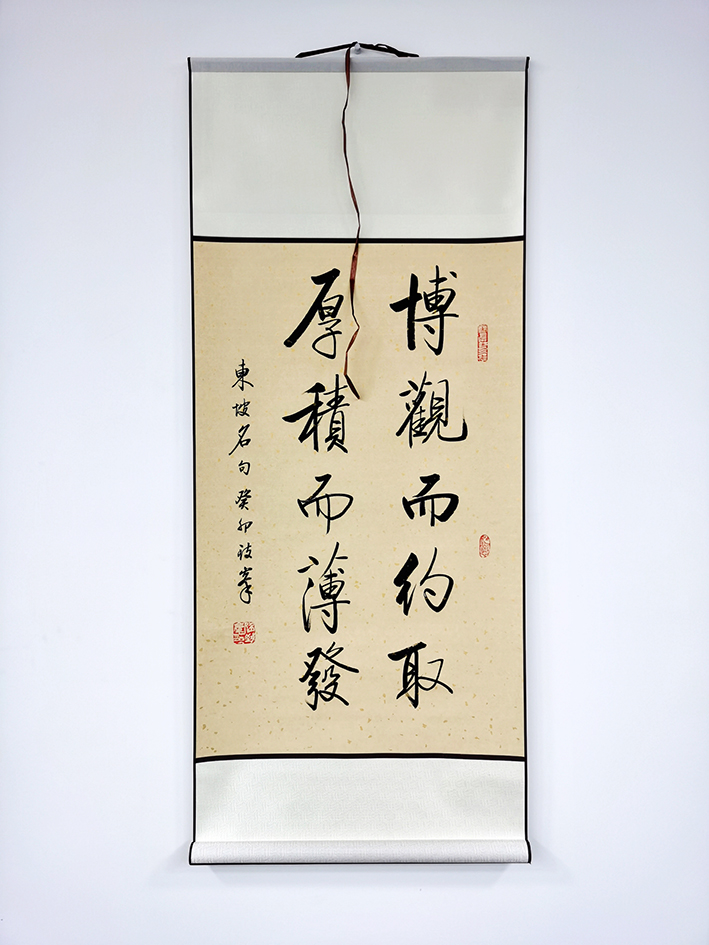 博觀而約取
厚積而薄發
東坡名句癸卯